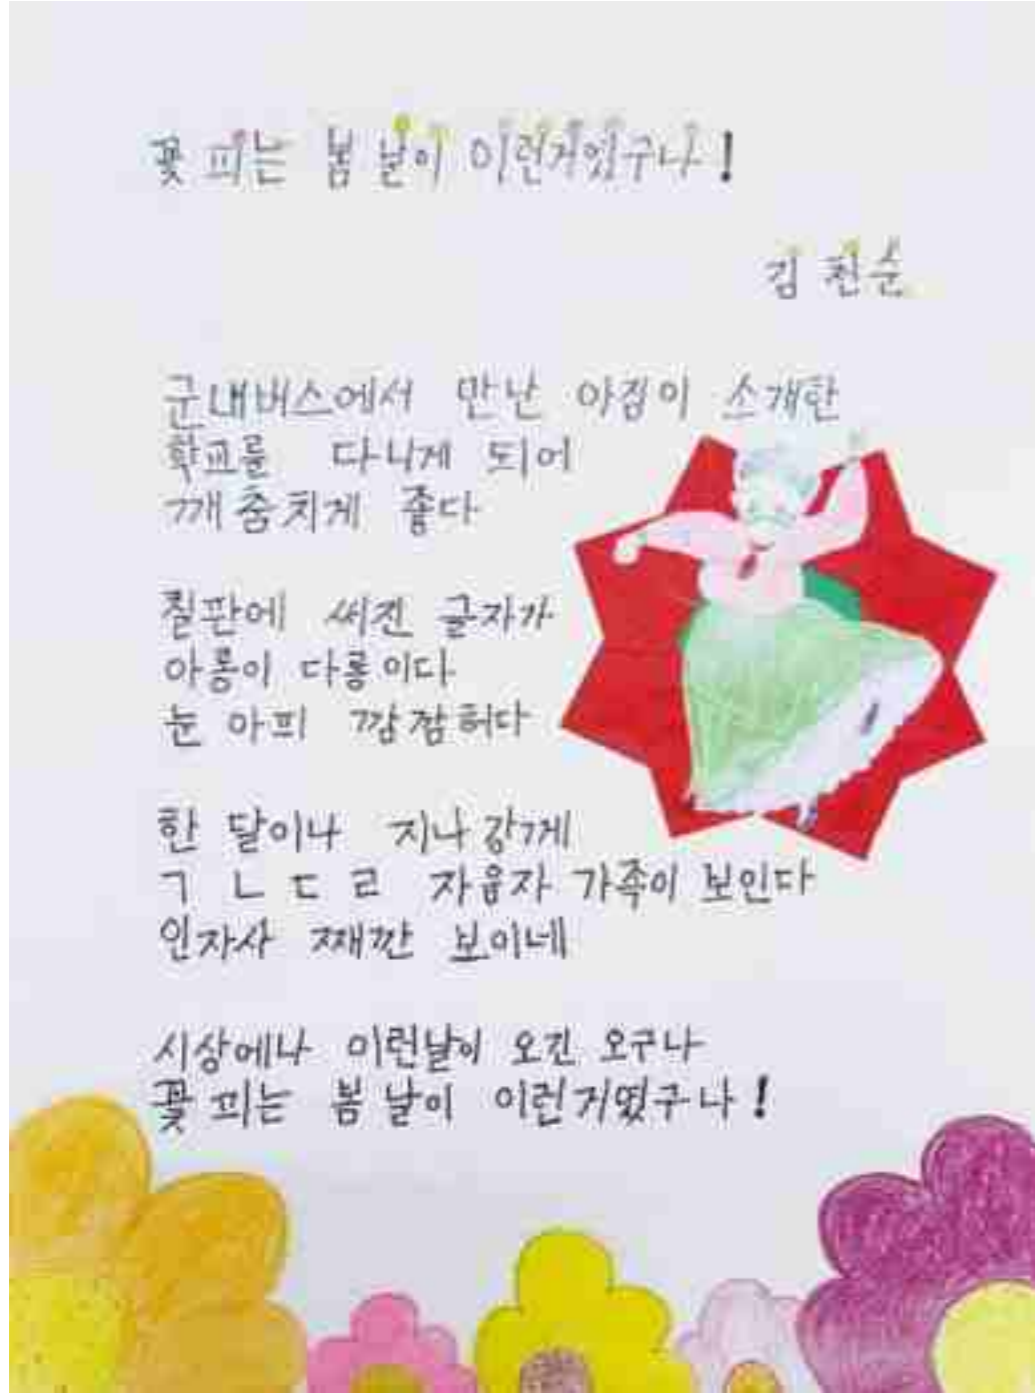 꽃 피는 봄 날이 이런거였구나!
김 천순
군내버스에서 만난 아점이 소개한
학교를 다니게 되어
깨춤치게 좋다
칠판에 써진 글자가
아롱이 다롱이다
눈 아피 깜깜허다
한 달이나 지나강게
ㄱ ㄴ ㄷ ㄹ 자음자 가족이 보인다
인자사 째깐 보이네
시상에나 이런날이 오긴 오구나
꽃 피는 봄 날이 이런거였구나!